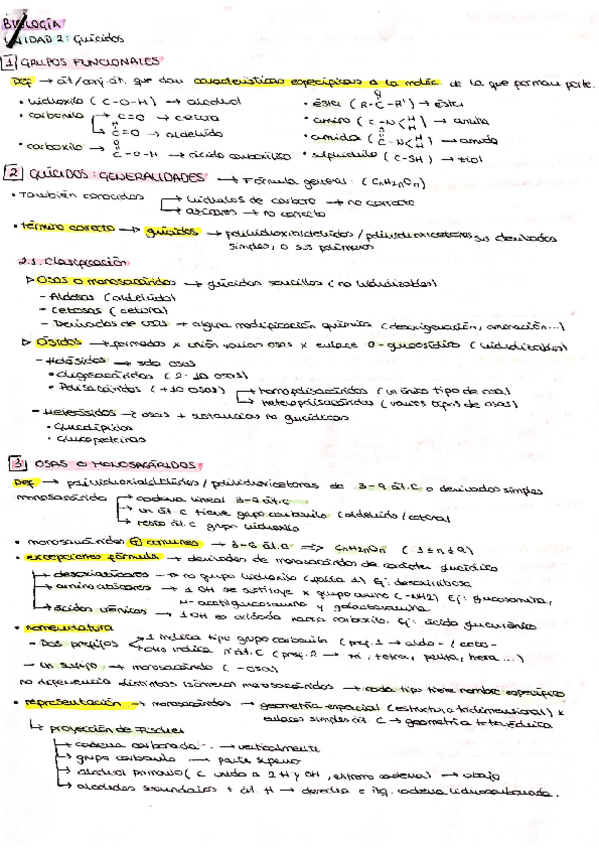 BIOLOGÍA
UNIDAD 2: Glúcidos
1 GRUPOS FUNCIONALES
Def → át/conj. át. que dan características específicas a la moléc. de la que forman parte.
• hidroxilo (C-O-H) → alcohol
• carbonilo → C=O → cetona
H C=O → aldehído
• carboxilo → O C-O-H → ácido carboxílico
• éster (R-C-R') → éster
• amino (C-N H H) → amina
• amida (C-N H H) → amida
• sulfhidrilo (C-SH) → tiol
2 GLÚCIDOS: GENERALIDADES → Fórmula general: (CnH2nOn)
• También conocidos → hidratos de carbono → no correcto
→ azúcares → no correcto
• término correcto → glúcidos → polihidroxialdehídos / polihidroxicetonas, sus derivados
simples, o sus polímeros
2.1. Clasificación
▷ Osas o monosacáridos → glúcidos sencillos (no hidrolizables)
- Aldosas (aldehído)
- Cetosas (cetona)
- Derivados de osas → alguna modificación química (desoxigenación, aminación...)
▷ Ósidos → formados x unión varias osas x enlace O-glucosídico (hidrolizables)
- Holósidos → solo osas
• Oligosacáridos (2-10 osas)
• Polisacáridos (+10 osas) → homopolisacáridos (un único tipo de osa)
→ heteropolisacáridos (varios tipos de osas)
- Heterósidos → osas + sustancias no glucídicas
• Glucolípidos
• Glucoproteínas
3 OSAS O MONOSACÁRIDOS
Def → polihidroxialdehídos / polihidroxicetonas de 3-9 át. C o derivados simples
monosacárido → cadena lineal 3-9 át. C
→ un át. C tiene grupo carbonilo (aldehído / cetona)
→ resto át. C grupo hidroxilo
• monosacáridos ⊕ comunes → 3-6 át. C => CnH2nOn (3≤n≤9)
• excepciones fórmula → derivados de monosacáridos de carácter glucídico
→ desoxiazúcares → no grupo hidroxilo (falta 1) Ej: desoxirribosa
→ aminoazúcares → 1 OH se sustituye x grupo amino (-NH2) Ej: glucosamina,
n-acetilglucosamina y galactosamina
→ ácidos urónicos → 1 OH es oxidado hacia carboxilo. Ej: ácido glucurónico
• nomenclatura
- Dos prefijos → 1 indica tipo grupo carbonilo (pref. 1 → aldo- / ceto-
→ otro indica nº át. C (pref. 2 → tri, tetra, penta, hexa...)
- Un sufijo → monosacárido (-osa)
no diferencia distintos isómeros monosacáridos → cada tipo tiene nombre específico
• representación → monosacáridos → geometría espacial (estructura tridimensional) x
enlaces simples át. C → geometría tetraédrica
↳ proyección de Fischer
→ cadena carbonada → verticalmente
→ grupo carbonilo → parte superior
→ alcohol primario (C unido a 2H y OH, extremo cadena) → abajo
→ alcoholes secundarios + át. H → derecha e izq. cadena hidrocarbonada.